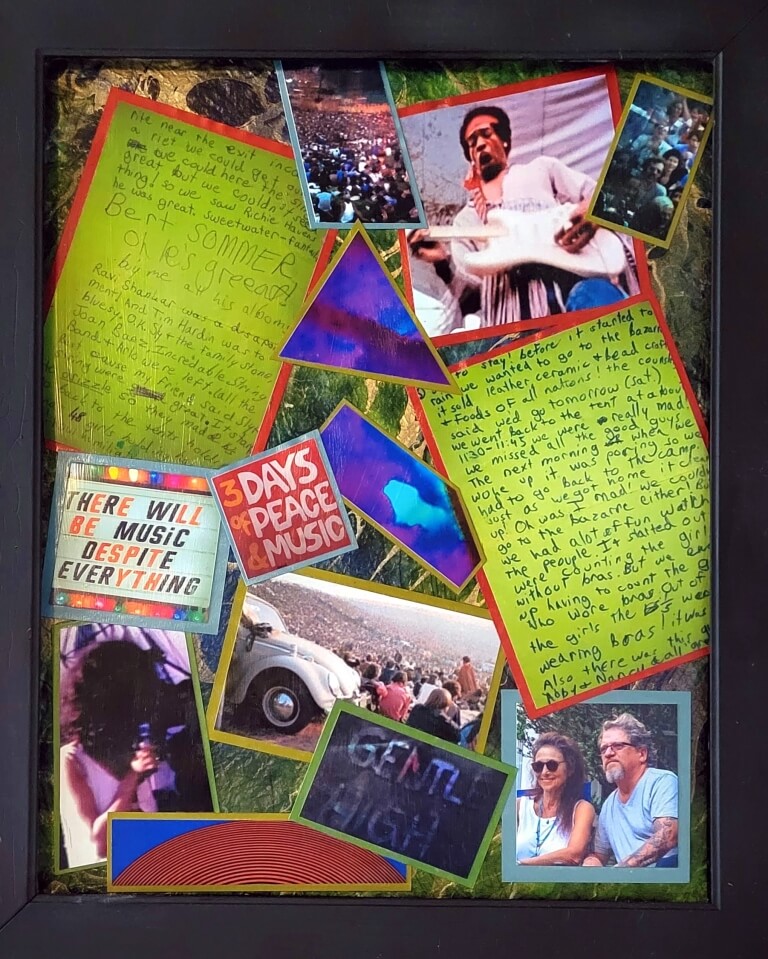 nte near the exit
a riet we could get
we could here the
great but we couldn't see
thing! so we saw Richie Havens
he was great. sweetwater-fantas
Bert SOMMER
oh he's greeat!
buy me all his albums
Ravi Shankar was a
ment, And Tim Hardin was to
blues. O.K. Sly + the family stone
Joan Baez, Incredible String
Band + who were left all the
cause my friend said
were great. It's
so they made
to the tents
48
to stay! before it started to
rain we wanted to go to the bazarre
it sold leather, ceramic + bead craft
+ foods OF all nations! the couns
said we'd go tomorrow (sat.)
we went back to the tent at about
1130-11:45 we were really mad.
we missed all the good guys.
The next morning when we
woke up it was poring so we
had to go back to the camp
just as we got home it
up! Oh was I mad! we couldn't
go to the bazarre either! But
we had a lot of fun watch
the people. It started out
were counting the girl
without bras. But we
up having to count the g
who wore bras. Out of
the girls the 65 were
wearing bras! it was
Also there was this g
Abby + Nancy + all
THERE WILL
BE MUSIC
DESPITE
EVERYTHING
3 DAYS
of PEACE
& MUSIC
GENTLE
HIGH